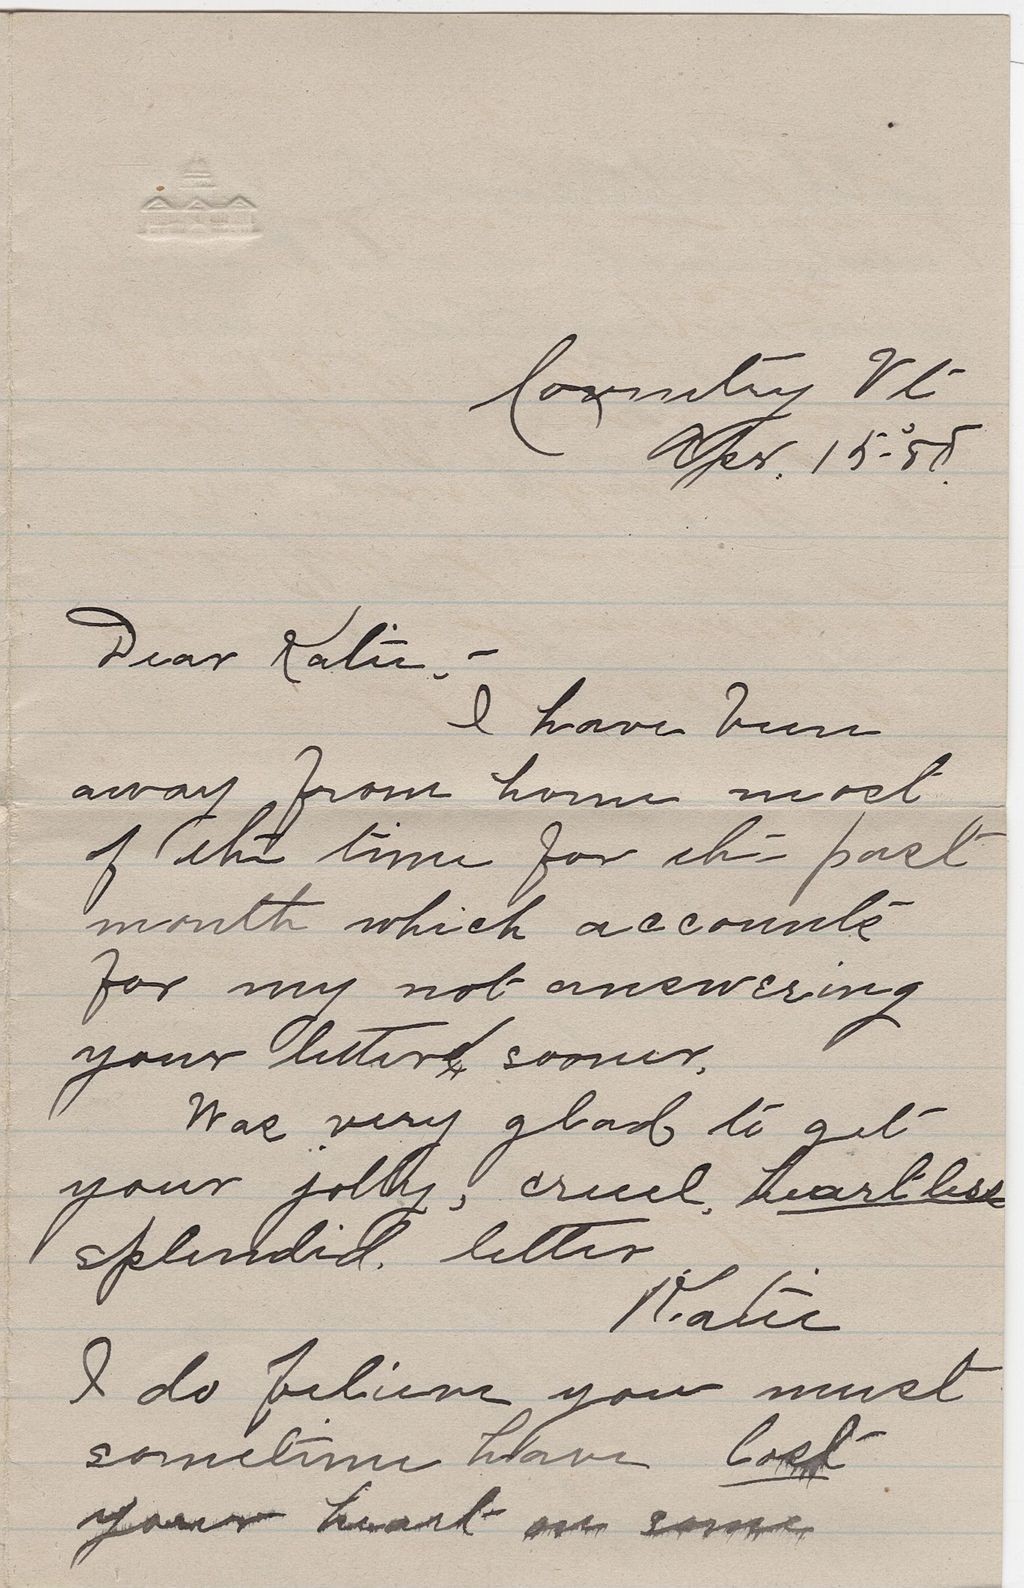 Coventry Vt
Apr. 15-'88.
Dear Katie,-
I have been
away from home most
of the time for the past
month which accounts
for my not answering
your letter sooner.
Was very glad to get
your jolly, cruel, heartless
splendid, letter
Katie
I do believe you must
sometime have lost
your heart on some